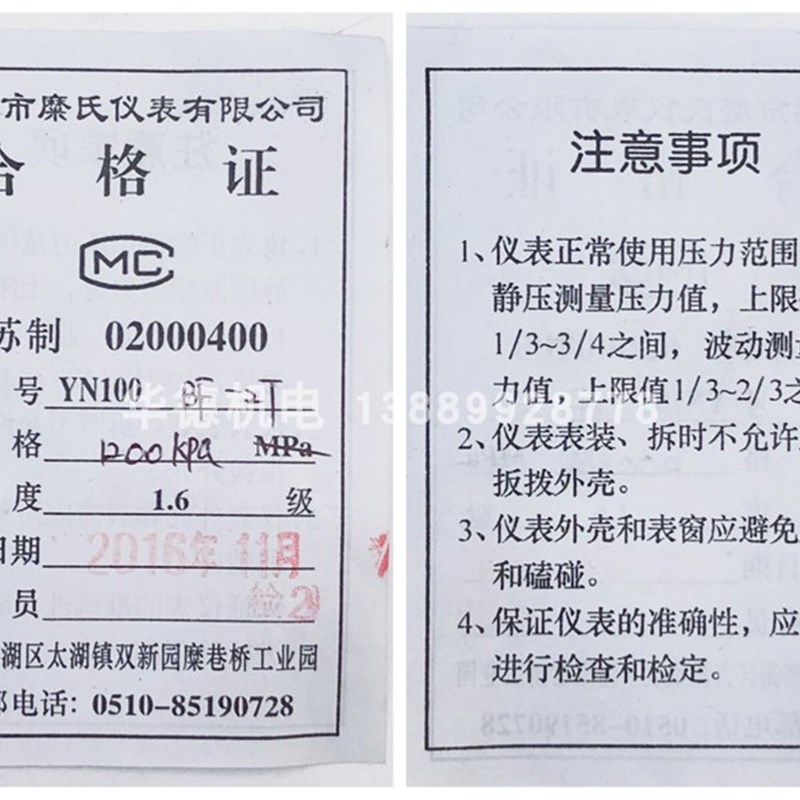 市糜氏仪表有限公司
合格证
MC
苏制 02000400
号 YN100 BF ST
格 1200kPa MPa
度 1.6 级
日期 2016年11月
员 检2
湖区太湖镇双新园糜巷桥工业园
部电话：0510-85190728
华德机电 13889928778
注意事项
1、仪表正常使用压力范围
静压测量压力值，上限
1/3~3/4之间，波动测量
力值，上限值1/3~2/3之
2、仪表表装、拆时不允许
扳拨外壳。
3、仪表外壳和表窗应避免
和磕碰。
4、保证仪表的准确性，应
进行检查和检定。